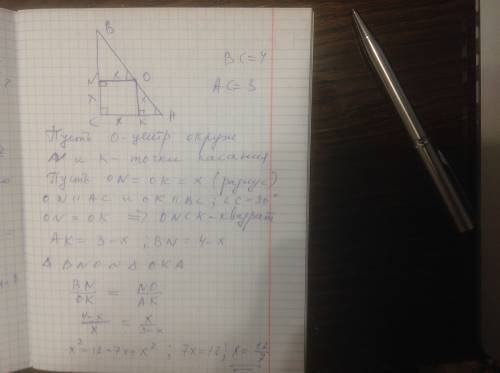 B
N x O
x x
C x K A
BC=4
AC=3
Пусть O-центр окруж
N и K - точки касания
Пусть ON=OK=x (радиус)
ON||AC и OK||BC; ∠C=90°
ON=OK => ONCK-квадрат
AK=3-x ; BN=4-x
Δ BNO ~ Δ OKA
BN/OK = NO/AK
4-x/x = x/3-x
x²=12-7x+x² ; 7x=12; x=12/7